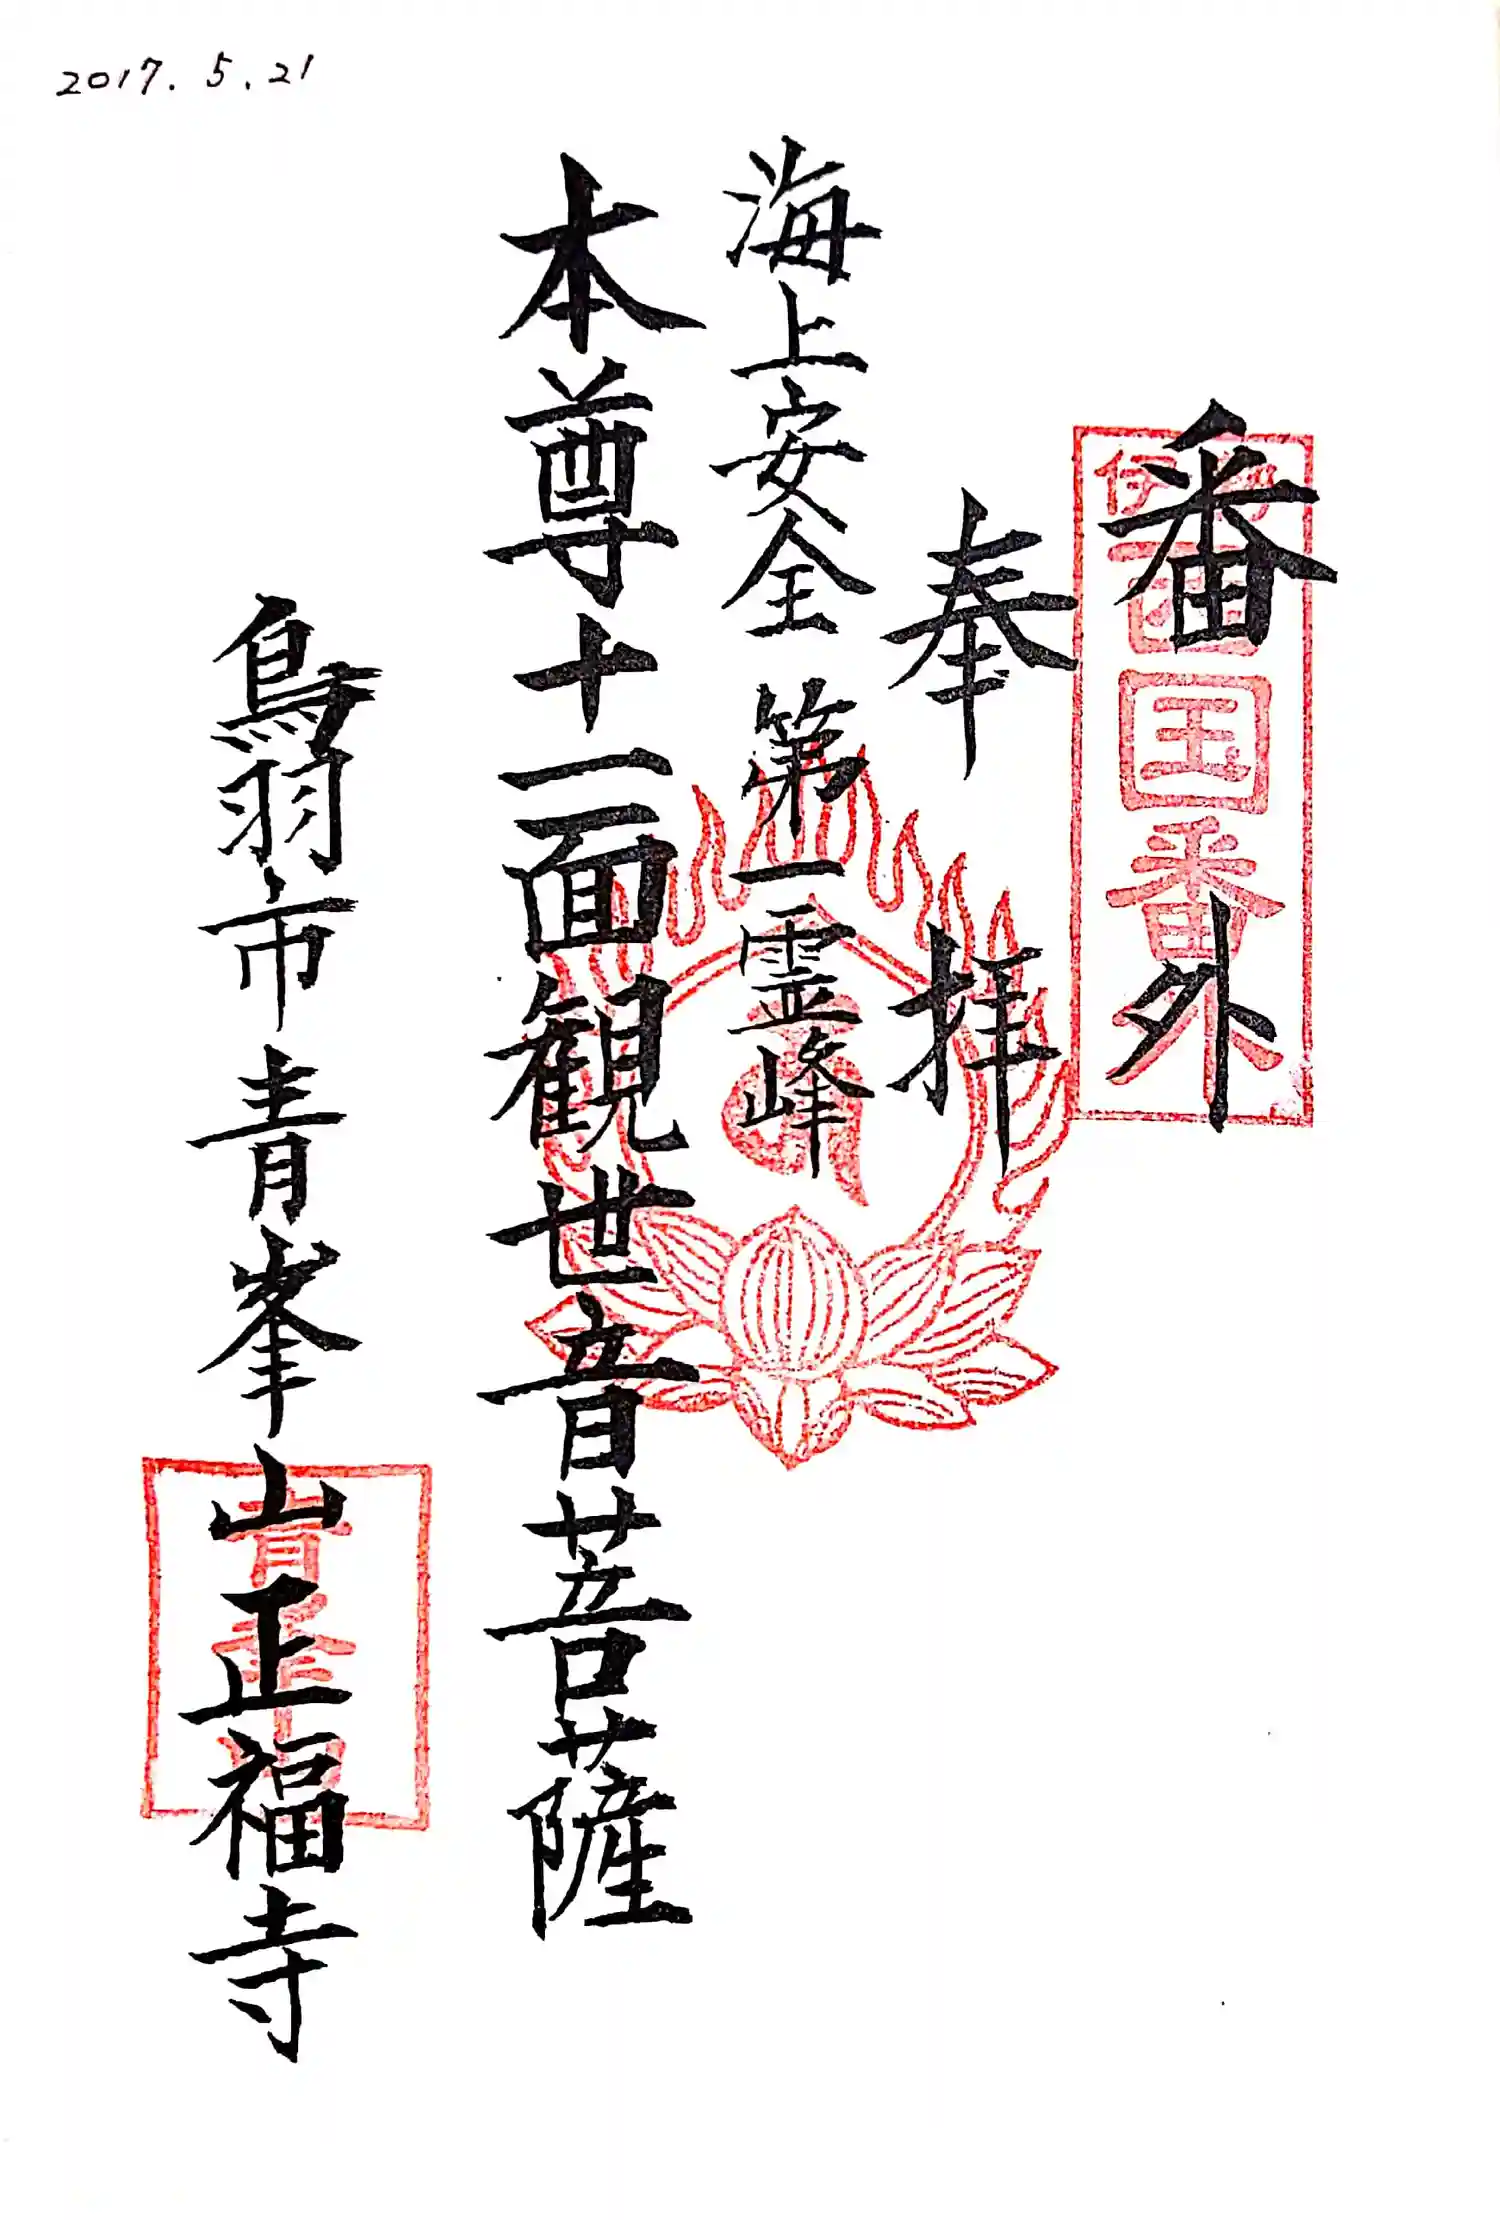 2017.5.21
番外
伊勢西国番外
奉拝
海上安全 第一霊峰
本尊十一面観世音菩薩
鳥羽市青峯山正福寺
青峯山